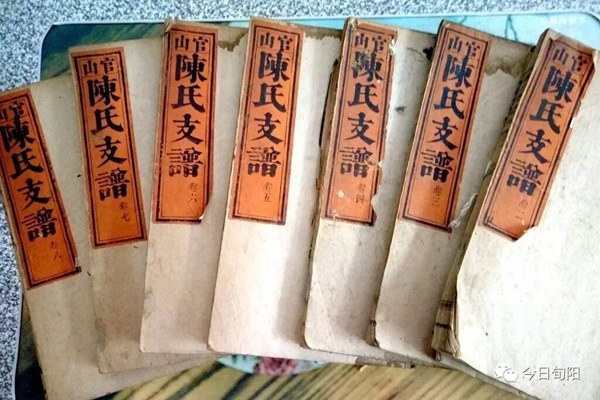 官山
陳氏支譜
卷二
官山
陳氏支譜
卷三
官山
陳氏支譜
卷四
官山
陳氏支譜
卷五
官山
陳氏支譜
卷六
官山
陳氏支譜
卷七
官山
陳氏支譜
卷八
今日旬阳